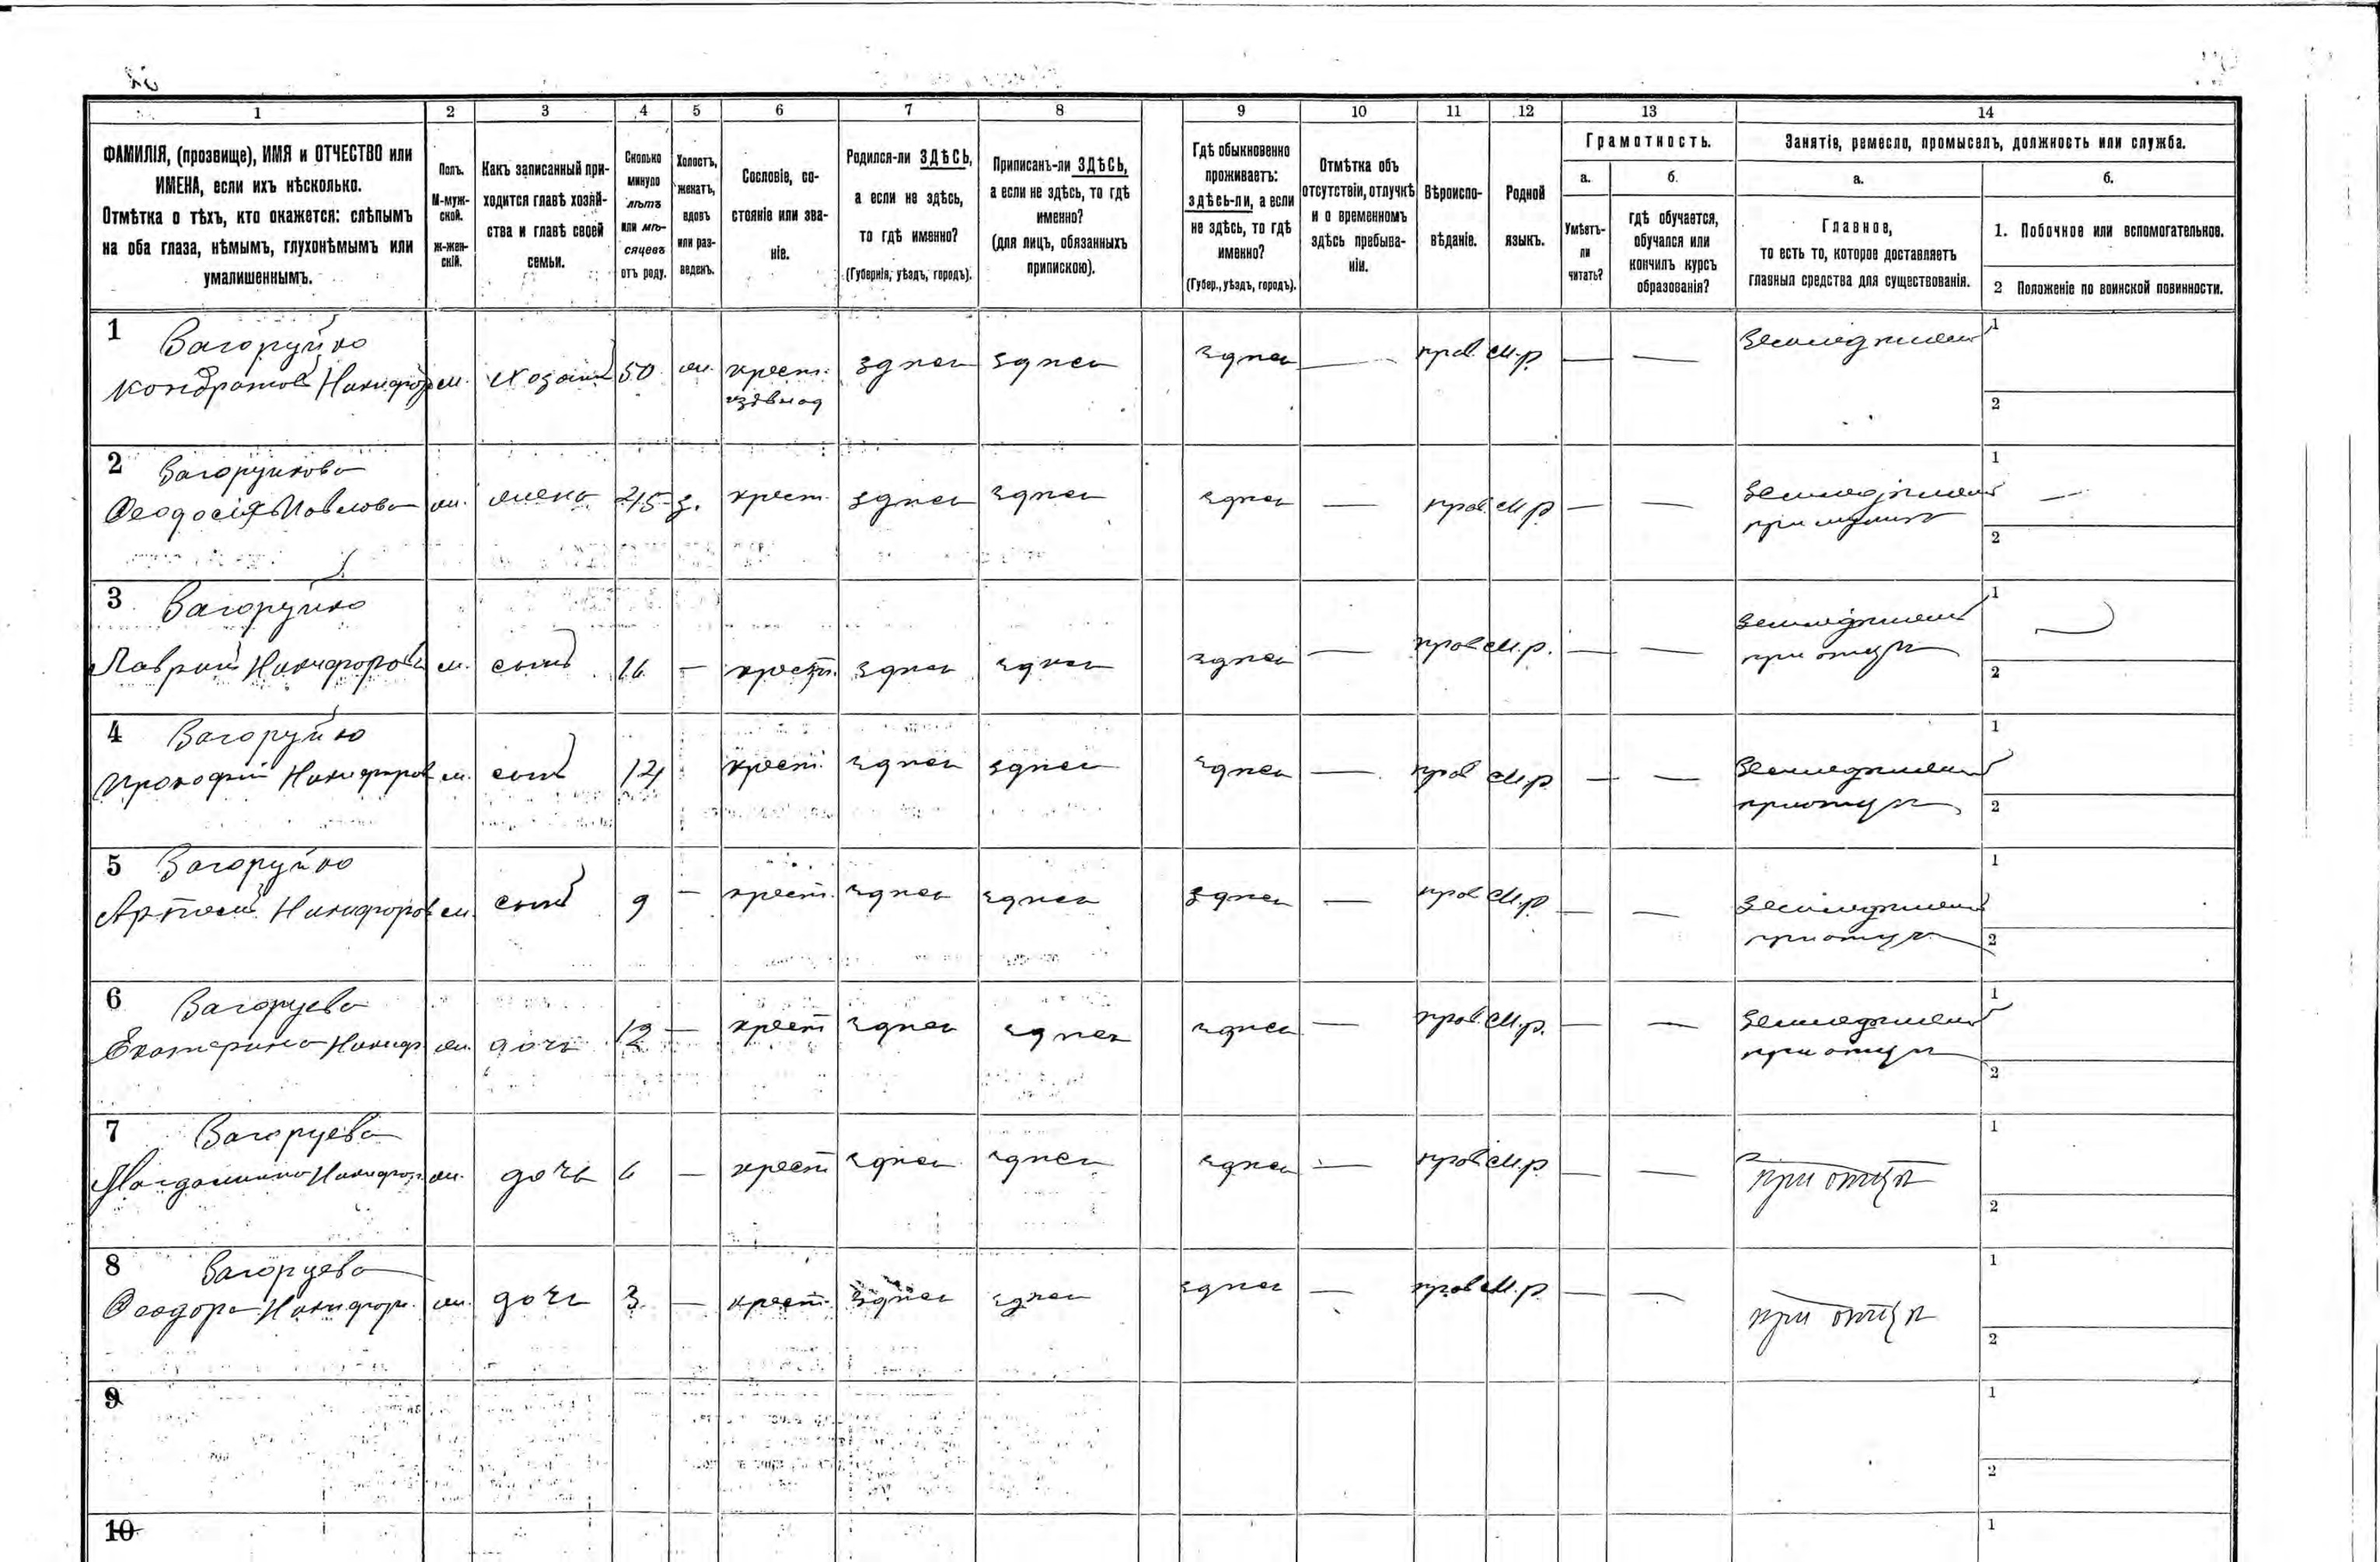 1 2 3 4 5 6 7 8 9 10 11 12 13 14
ФАМИЛІЯ, (прозвище), ИМЯ и ОТЧЕСТВО или
ИМЕНА, если ихъ нѣсколько.
Отмѣтка о тѣхъ, кто окажется: слѣпымъ
на оба глаза, нѣмымъ, глухонѣмымъ или
умалишеннымъ.
Полъ.
М-муж-
ской.
ж-жен-
скій.
Какъ записанный при-
ходится главѣ хозяй-
ства и главѣ своей
семьи.
Сколько
минуло
лѣтъ
или мѣ-
сяцевъ
отъ роду.
Холостъ,
женатъ,
вдовъ
или раз-
веденъ.
Сословіе, со-
стояніе или зва-
ніе.
Родился-ли ЗДѢСЬ,
а если не здѣсь,
то гдѣ именно?
(Губернія, уѣздъ, городъ).
Приписанъ-ли ЗДѢСЬ,
а если не здѣсь, то гдѣ
именно?
(для лицъ, обязанныхъ
припискою).
Гдѣ обыкновенно
проживаетъ:
здѣсь-ли, а если
не здѣсь, то гдѣ
именно?
(Губер., уѣздъ, городъ).
Отмѣтка объ
отсутствіи, отлучкѣ
и о временномъ
здѣсь пребыва-
ніи.
Вѣроиспо-
вѣданіе.
Родной
языкъ.
Грамотность.
а.
Умѣетъ-
ли
читать?
б.
гдѣ обучается,
обучался или
кончилъ курсъ
образованія?
Занятіе, ремесло, промыселъ, должность или служба.
а.
Главное,
то есть то, которое доставляетъ
главныя средства для существованія.
б.
1. Побочное или вспомогательное.
2 Положеніе по воинской повинности.
1 Загоруйко
м. хозяинъ 50 ж. крест. здесь здесь здесь — прав. м.р. — — 1
2
2 Загоруйкова
Феодосія Павлова ж. жена 45 з. крест. здесь здесь здесь — прав. м.р — — 1
при мужѣ 2
3 Загоруйко
Никифоровъ м. сынъ 16 — крест. здесь здесь здесь — прав м.р. — — 1
при отцѣ 2
4 Загоруйко
Прокофій Никифоровъ м. сынъ крест. здесь здесь здесь — прав м.р — — 1
при отцѣ 2
5 Загоруйко
Никифоровъ м. сынъ 9 — крест. здесь здесь здесь — прав м.р. — — 1
при отцѣ 2
6
Екатерина Никифор ж. дочь 12 — крест здесь здесь здесь — прав. м.р. — — 1
при отцѣ 2
7
ж. дочь 6 — крест здесь здесь здесь — прав м.р — — при отцѣ 1
2
8
Феодора Никифор. ж. дочь 3 — крест. здесь здесь здесь — прав м.р — — при отцѣ 1
2
9 1
2
10 1